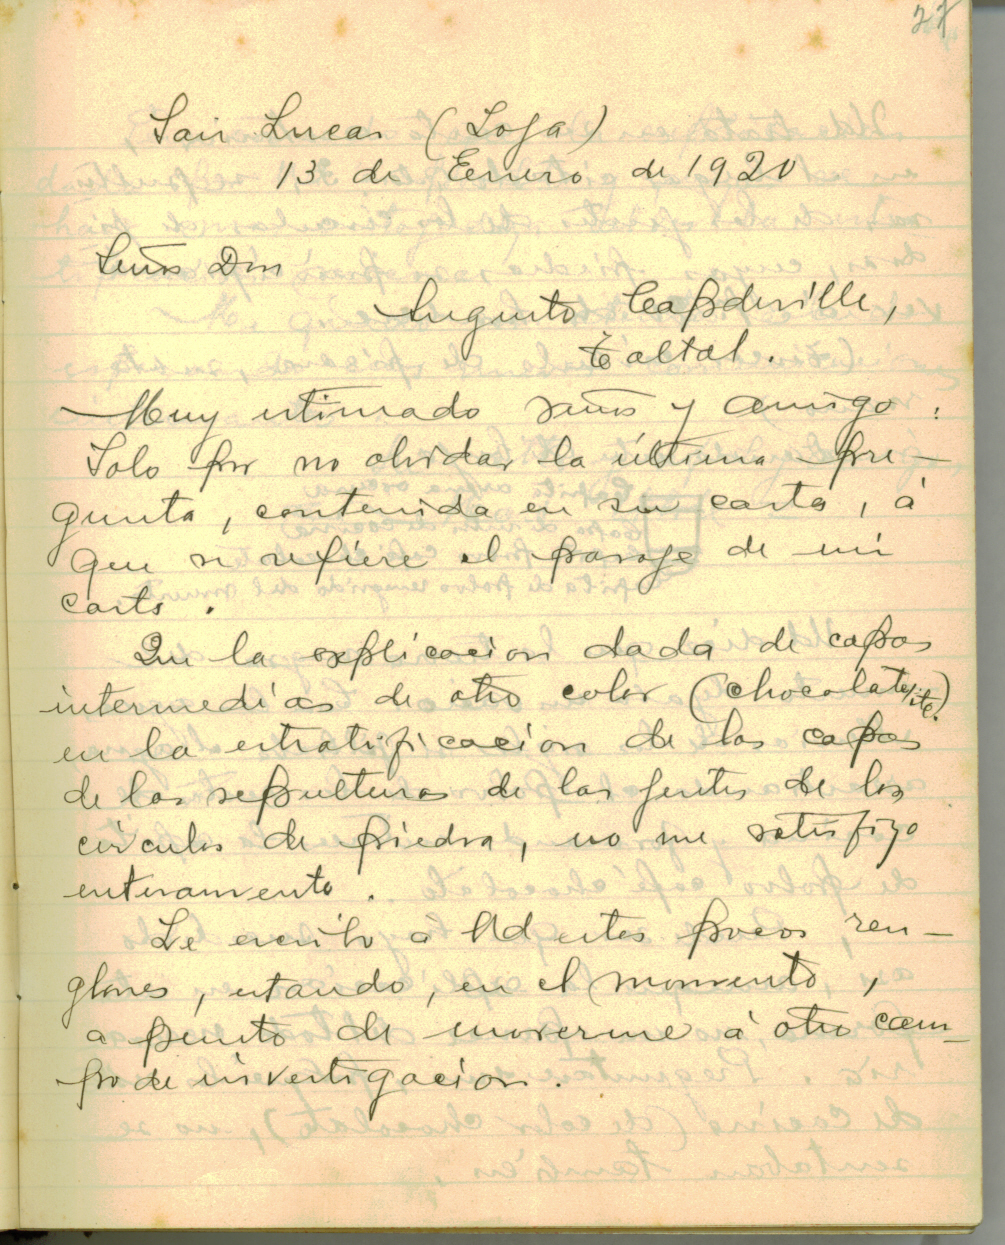 27
San Lucas (Loja)
13 de Enero de 1920
Señor Don
Augusto Capdeville,
Taltal.
Muy estimado señor y amigo:
Solo por no olvidar la última pre-
gunta, contenida en su carta, á
que se refiere el pasaje de mi
carta.
Que la esplicacion dada de capas
intermedias de otro color (chocolate, etc.)
en la estratificacion de las capas
de las sepulturas de las gentes de los
círculos de piedra, no me satisfizo
enteramente.
Le escribo á Ud estos pocos ren-
glones, estando, en el momento,
a punto de moverme á otro cam-
po de investigacion.